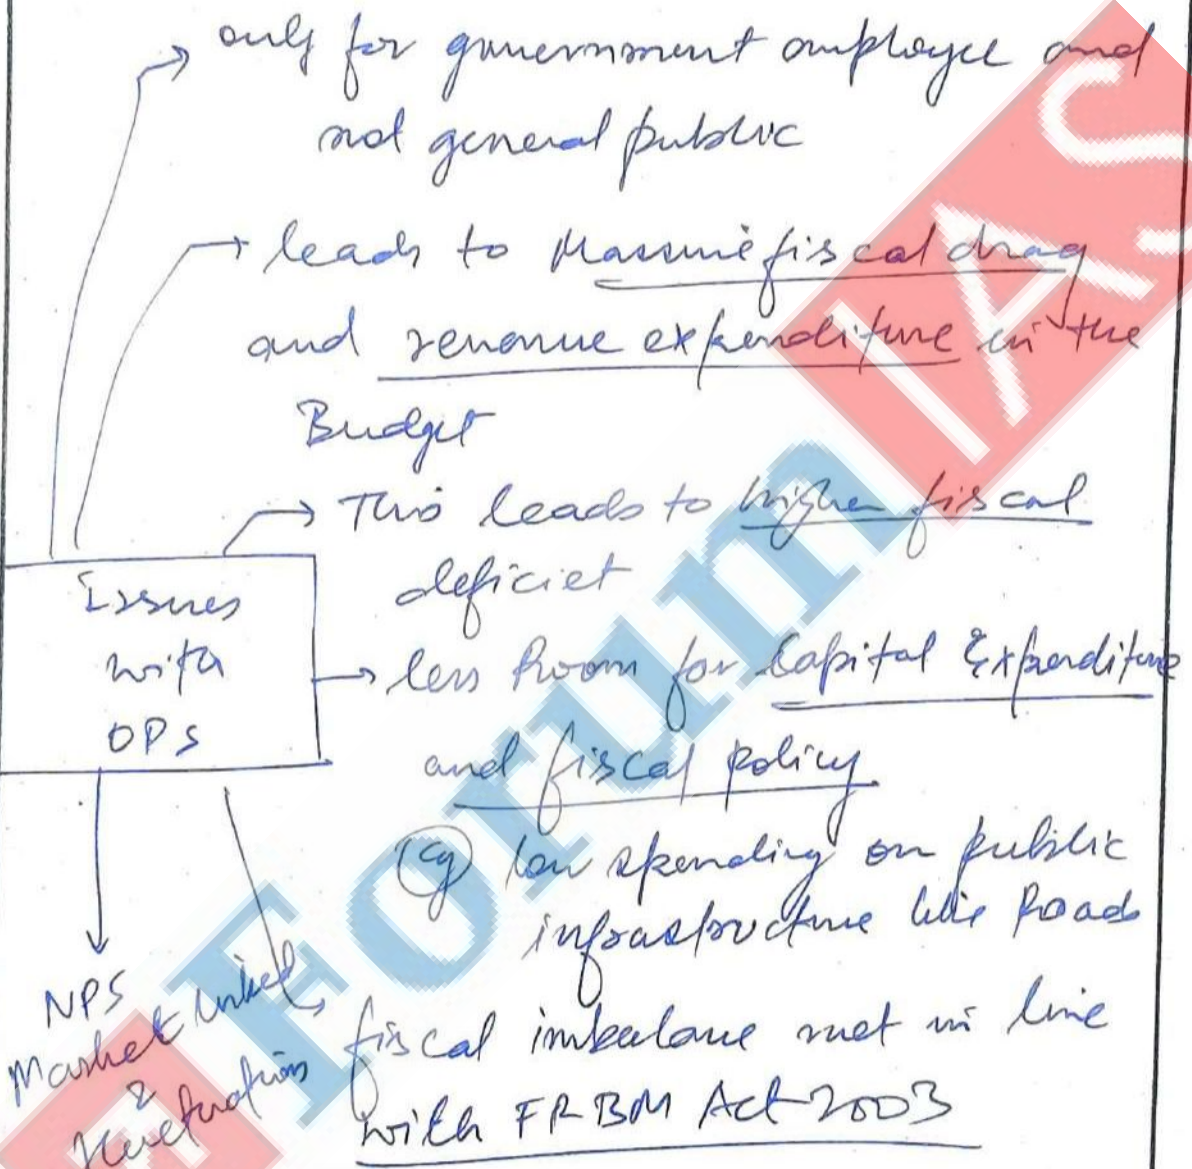 only for government employee and
not general public
leads to Massive fiscal drag
and revenue expenditure in the
Budget
This leads to higher fiscal
deficiet
Issues
with
OPS
less Room for Capital Expenditure
and fiscal policy
eg low spending on public
infrastructure like Roads
NPS
Market linked
&
fluctuations
fiscal imbalance not in line
with FRBM Act 2003
Forum IAS